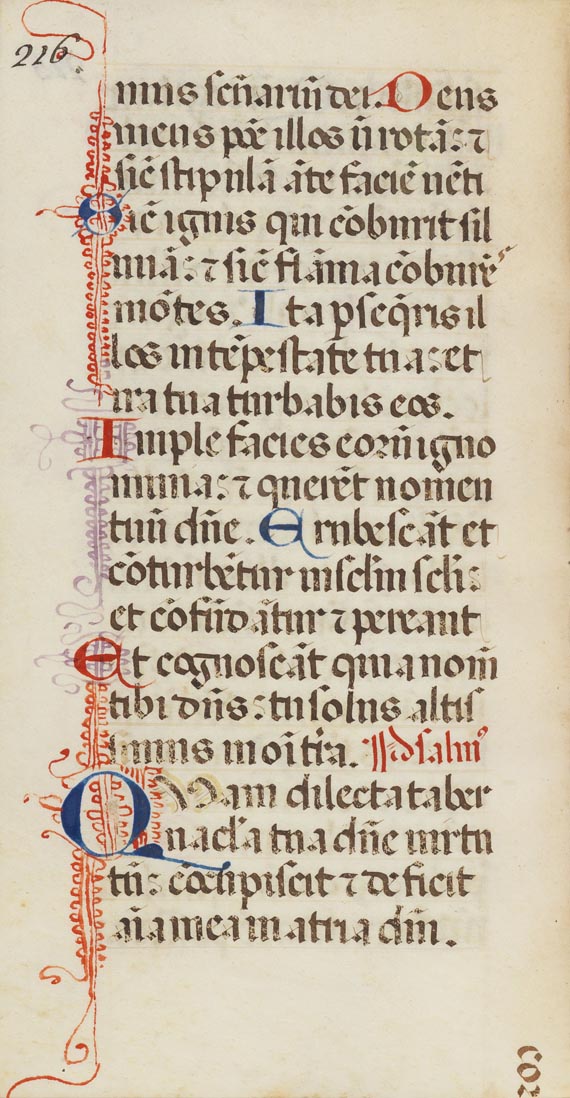 216
mus scūariū dei. Deus
meus pōe illos ū rotā: ⁊
sic̄ stipulā āte faciē uēti
Sic̄ ignis qui cōburit sil
uā: ⁊ sic̄ flāma cōburēs
mōtes. Ita ꝑseq̄ris il
los in tēpestate tua: et
ira tua turbabis eos.
Imple facies eorū igno
minia: ⁊ querēt nomen
tuū dn̄e. Erubescāt et
cōturbētur in sclm̄ scli:
et cōfūdātur ⁊ pereant
Et cognoscāt quia nom̄
tibi dn̄s: tu solus altis
simus in oī tr̄a. psalmꝰ
QUam dilecta taber
nacl̄a tua dn̄e uirtu
tū: cōcupiscit ⁊ deficit
aīa mea in atria dn̄i.